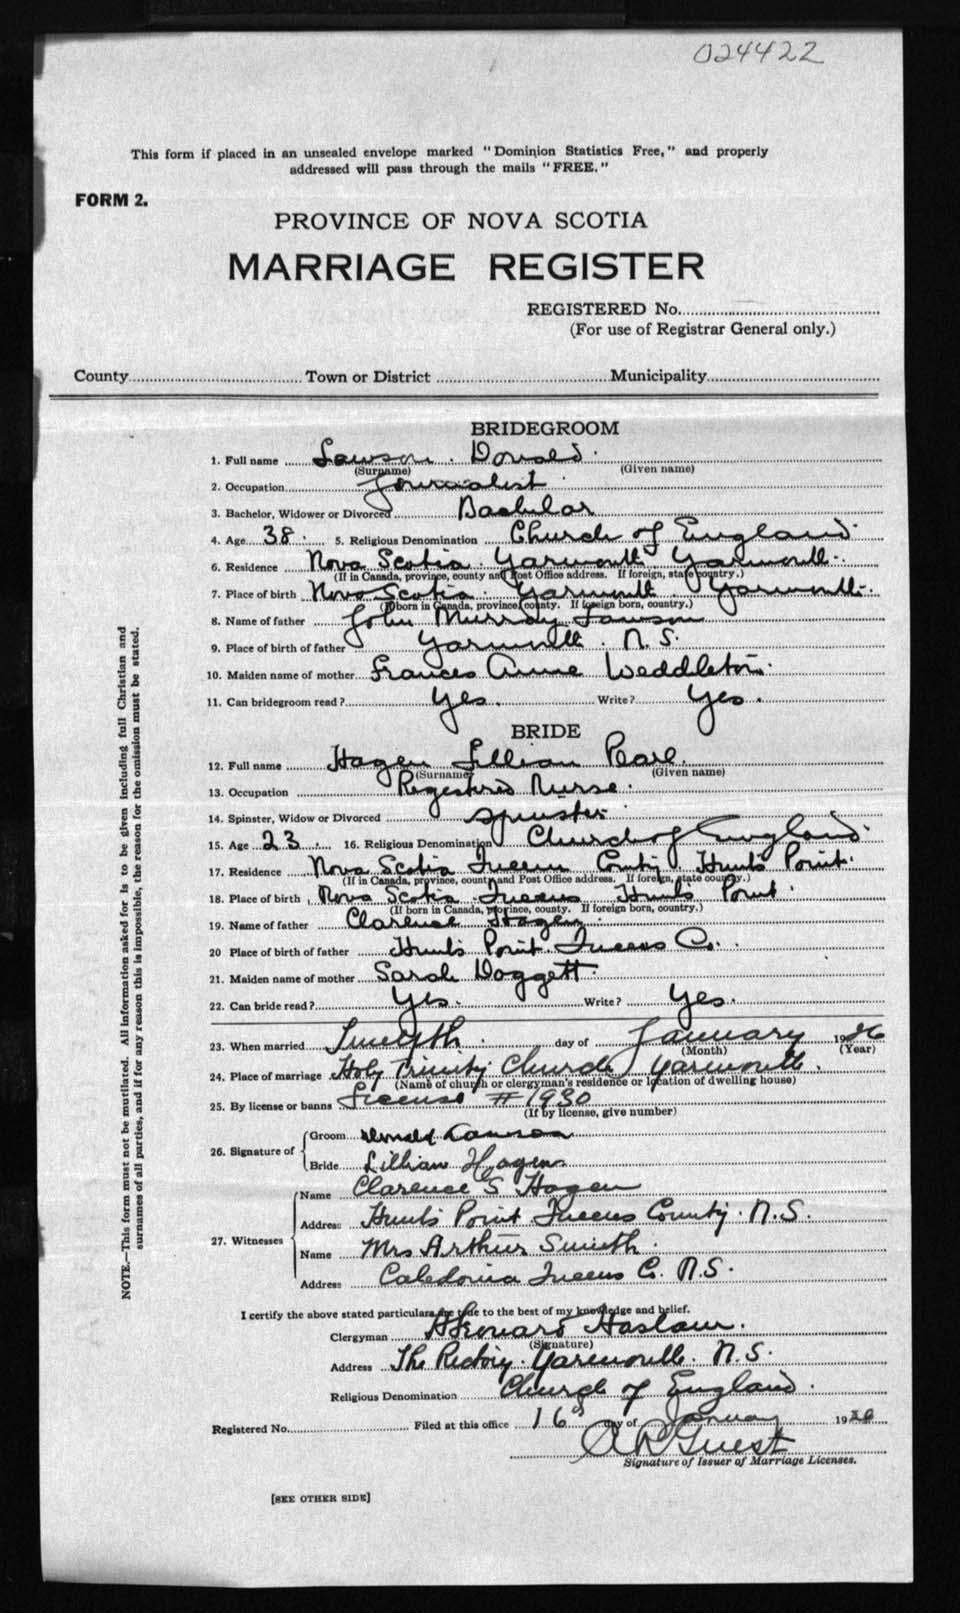 024422
This form if placed in an unsealed envelope marked "Dominion Statistics Free," and properly
addressed will pass through the mails "FREE."
FORM 2.
PROVINCE OF NOVA SCOTIA
MARRIAGE REGISTER
REGISTERED No.
(For use of Registrar General only.)
County Town or District Municipality
BRIDEGROOM
1. Full name Lawson Donald
(Surname) (Given name)
2. Occupation Journalist
3. Bachelor, Widower or Divorced Bachelor
4. Age 38 5. Religious Denomination Church of England
6. Residence Nova Scotia Yarmouth Yarmouth
(If in Canada, province, county and Post Office address. If foreign, state country.)
7. Place of birth Nova Scotia Yarmouth Yarmouth
(If born in Canada, province, county. If foreign born, country.)
8. Name of father John Murray Lawson
9. Place of birth of father Yarmouth N.S.
10. Maiden name of mother Frances Anne Weddleton
11. Can bridegroom read? Yes. Write? Yes.
BRIDE
12. Full name Hagen Lillian Pearl
(Surname) (Given name)
13. Occupation Registered Nurse
14. Spinster, Widow or Divorced Spinster
15. Age 23 16. Religious Denomination Church of England
17. Residence Nova Scotia Queens County Hunts Point
(If in Canada, province, county and Post Office address. If foreign, state country.)
18. Place of birth Nova Scotia Queens Hunts Point
(If born in Canada, province, county. If foreign born, country.)
19. Name of father Clarence Hagen
20 Place of birth of father Hunts Point Queens Co.
21. Maiden name of mother Sarah Doggett
22. Can bride read? Yes. Write? Yes.
23. When married day of January 1926
(Month) (Year)
24. Place of marriage Holy Trinity Church Yarmouth.
(Name of church or clergyman's residence or location of dwelling house)
25. By license or banns License #1930
(If by license, give number)
26. Signature of Groom Donald Lawson
Bride Lillian Hagen
27. Witnesses Name Clarence S Hagen
Address Hunts Point Queens County. N.S.
Name Mrs Arthur Smith
Address Caledonia Queens Co. N.S.
I certify the above stated particulars are true to the best of my knowledge and belief.
Clergyman Haslam.
(Signature)
Address The Rectory. Yarmouth. N.S.
Religious Denomination Church of England.
Registered No. Filed at this office 16 day of January 1926
A R Guest
Signature of Issuer of Marriage Licenses.
[SEE OTHER SIDE]
NOTE.—This form must not be mutilated. All information asked for is to be given including full Christian and
surnames of all parties, and if for any reason this is impossible, the reason for the omission must be stated.